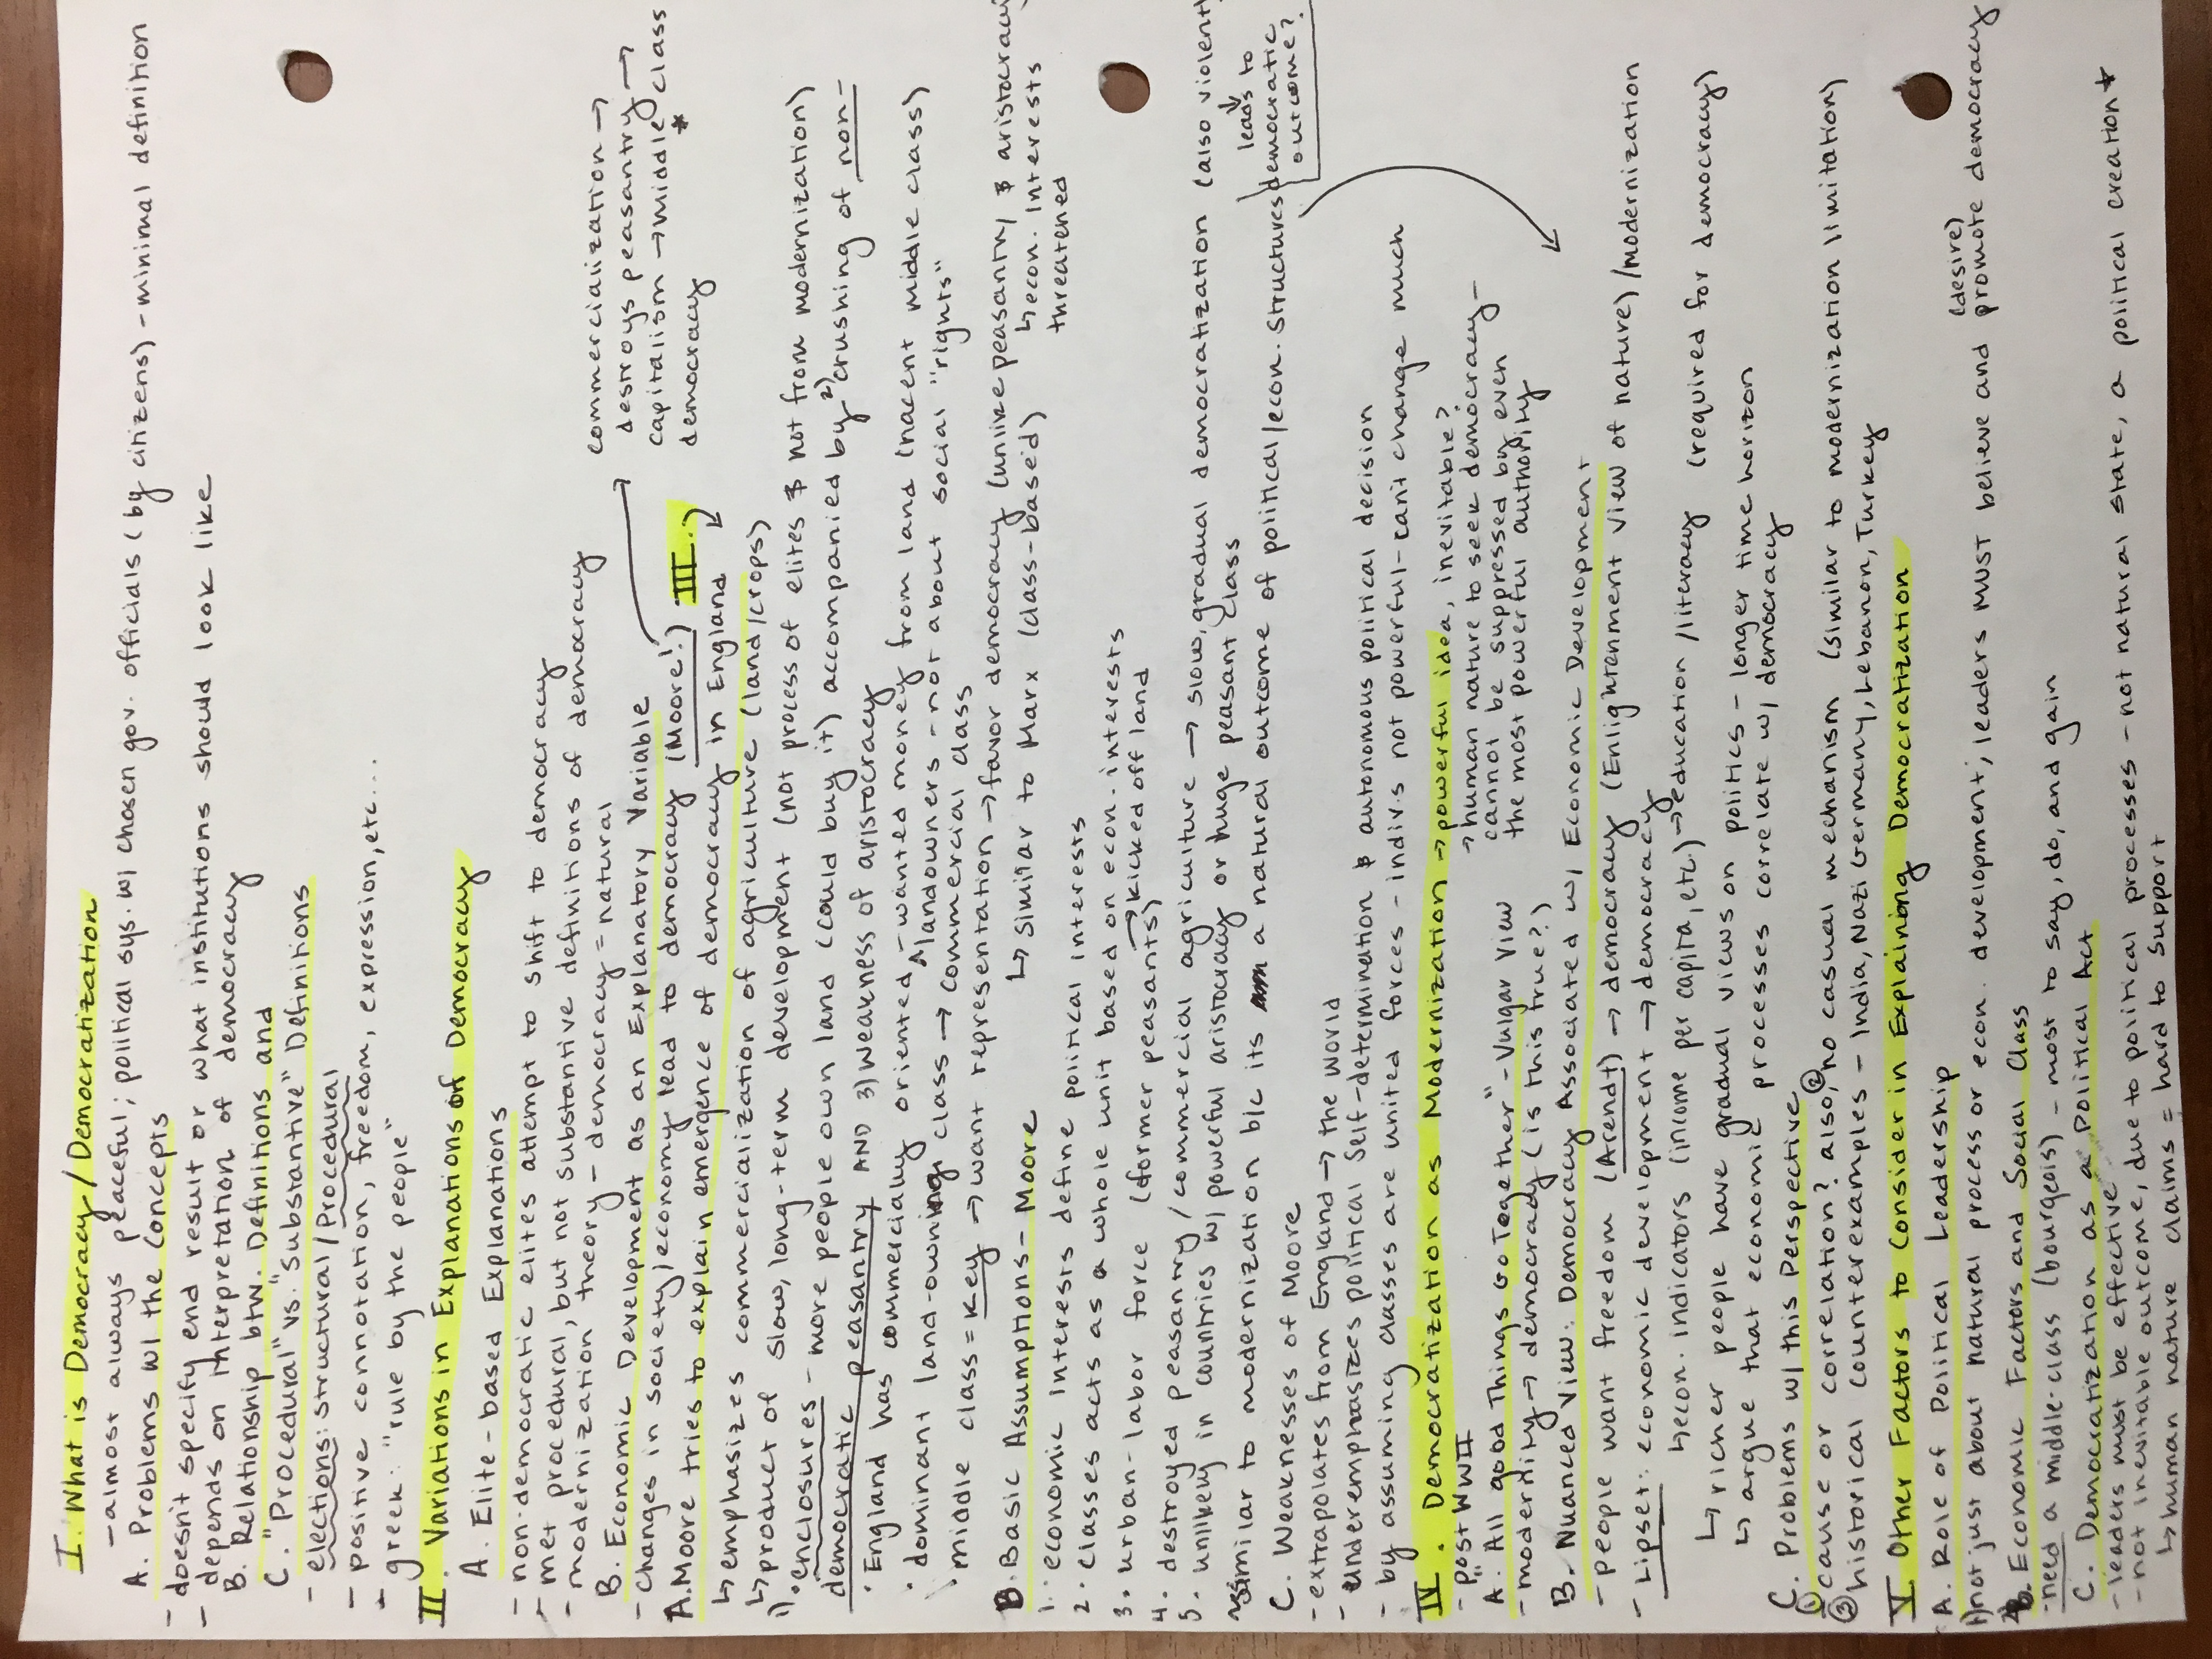 I. What is Democracy/Democratization
- almost always peaceful; political sys. w/ chosen gov. officials (by citizens) - minimal definition
A. Problems w/ the Concepts
- doesn't specify end result or what institutions should look like
- depends on interpretation of democracy
B. Relationship btw. Definitions and
C. "Procedural" vs. "Substantive" Definitions
- elections: structural/procedural
- positive connotation, freedom, expression, etc...
- greek: "rule by the people"
II. Variations in Explanations of Democracy
A. Elite-based Explanations
- non-democratic elites attempt to shift to democracy
- met procedural, but not substantive definitions of democracy
- modernization theory - democracy = natural
B. Economic Development as an Explanatory Variable
- changes in society/economy lead to democracy (Moore!) III.
commercialization →
destroys peasantry →
capitalism → middle class *
democracy
A. Moore tries to explain emergence of democracy in England
↳ emphasizes commercialization of agriculture (land/crops)
↳ product of slow, long-term development (not process of elites & not from modernization)
1) • enclosures - more people own land (could buy it) accompanied by 2) crushing of non-
democratic peasantry AND 3) weakness of aristocracy
• England has commercially oriented - wanted money from land (nacent middle class)
^ landowners - not about social "rights"
• dominant land-owning class → commercial class
• middle class = key → want representation → favor democracy (unlike peasantry & aristocracy
↳ similar to Marx (class-based)
↳ econ. interests
threatened
B. Basic Assumptions - Moore
1. economic interests define political interests
2. classes acts as a whole unit based on econ. interests
3. urban-labor force (former peasants) → kicked off land
4. destroyed peasantry/commercial agriculture → slow, gradual democratization (also violent
5. unlikely in countries w/ powerful aristocracy or huge peasant class
similar to modernization b/c its a natural outcome of political/econ. structures } leads to
democratic
outcome?
C. Weaknesses of Moore
- extrapolates from England → the world
- underemphasizes political self-determination & autonomous political decision
- by assuming classes are united forces - indivs not powerful - can't change much
IV. Democratization as Modernization → powerful idea, inevitable?
- "post WWII
→ human nature to seek democracy -
cannot be suppressed by even
the most powerful authority
A. All good Things Go Together" - Vulgar View
- modernity → democracy (is this true?)
B. Nuanced View: Democracy Associated w/ Economic Development
- people want freedom (Arendt) → democracy (Enlightenment view of nature)/modernization
- Lipset: economic development → democracy
↳ econ. indicators (income per capita, etc.) → education/literacy (required for democracy)
↳ richer people have gradual views on politics - longer time horizon
↳ argue that economic processes correlate w/ democracy
C. Problems w/ this Perspective
① cause or correlation? also, ② no casual mechanism (similar to modernization limitation)
③ historical counterexamples - India, Nazi Germany, Lebanon, Turkey
V. Other Factors to Consider in Explaining Democratization
A. Role of Political Leadership
1) not just about natural process or econ. development; leaders MUST believe and (desire) promote democracy
B. Economic Factors and Social Class
- need a middle-class (bourgeois) - most to say, do, and gain
C. Democratization as a Political Act
- leaders must be effective
- not inevitable outcome, due to political processes - not natural state, a political creation *
↳ human nature claims = hard to support